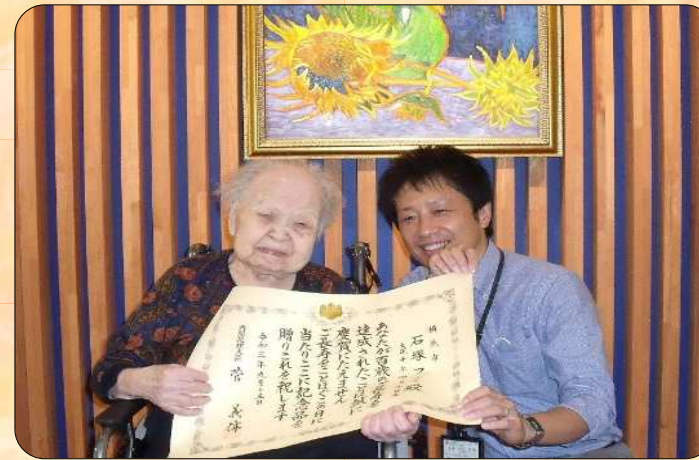 石塚フ 殿
あなたが百歳の長寿を
達成されたことは誠に
慶賀にたえません
ご長寿をことほぎこの日に
当たりここに記念品を
贈りこれを祝します
令和三年九月十五日
内閣総理大臣 菅 義偉